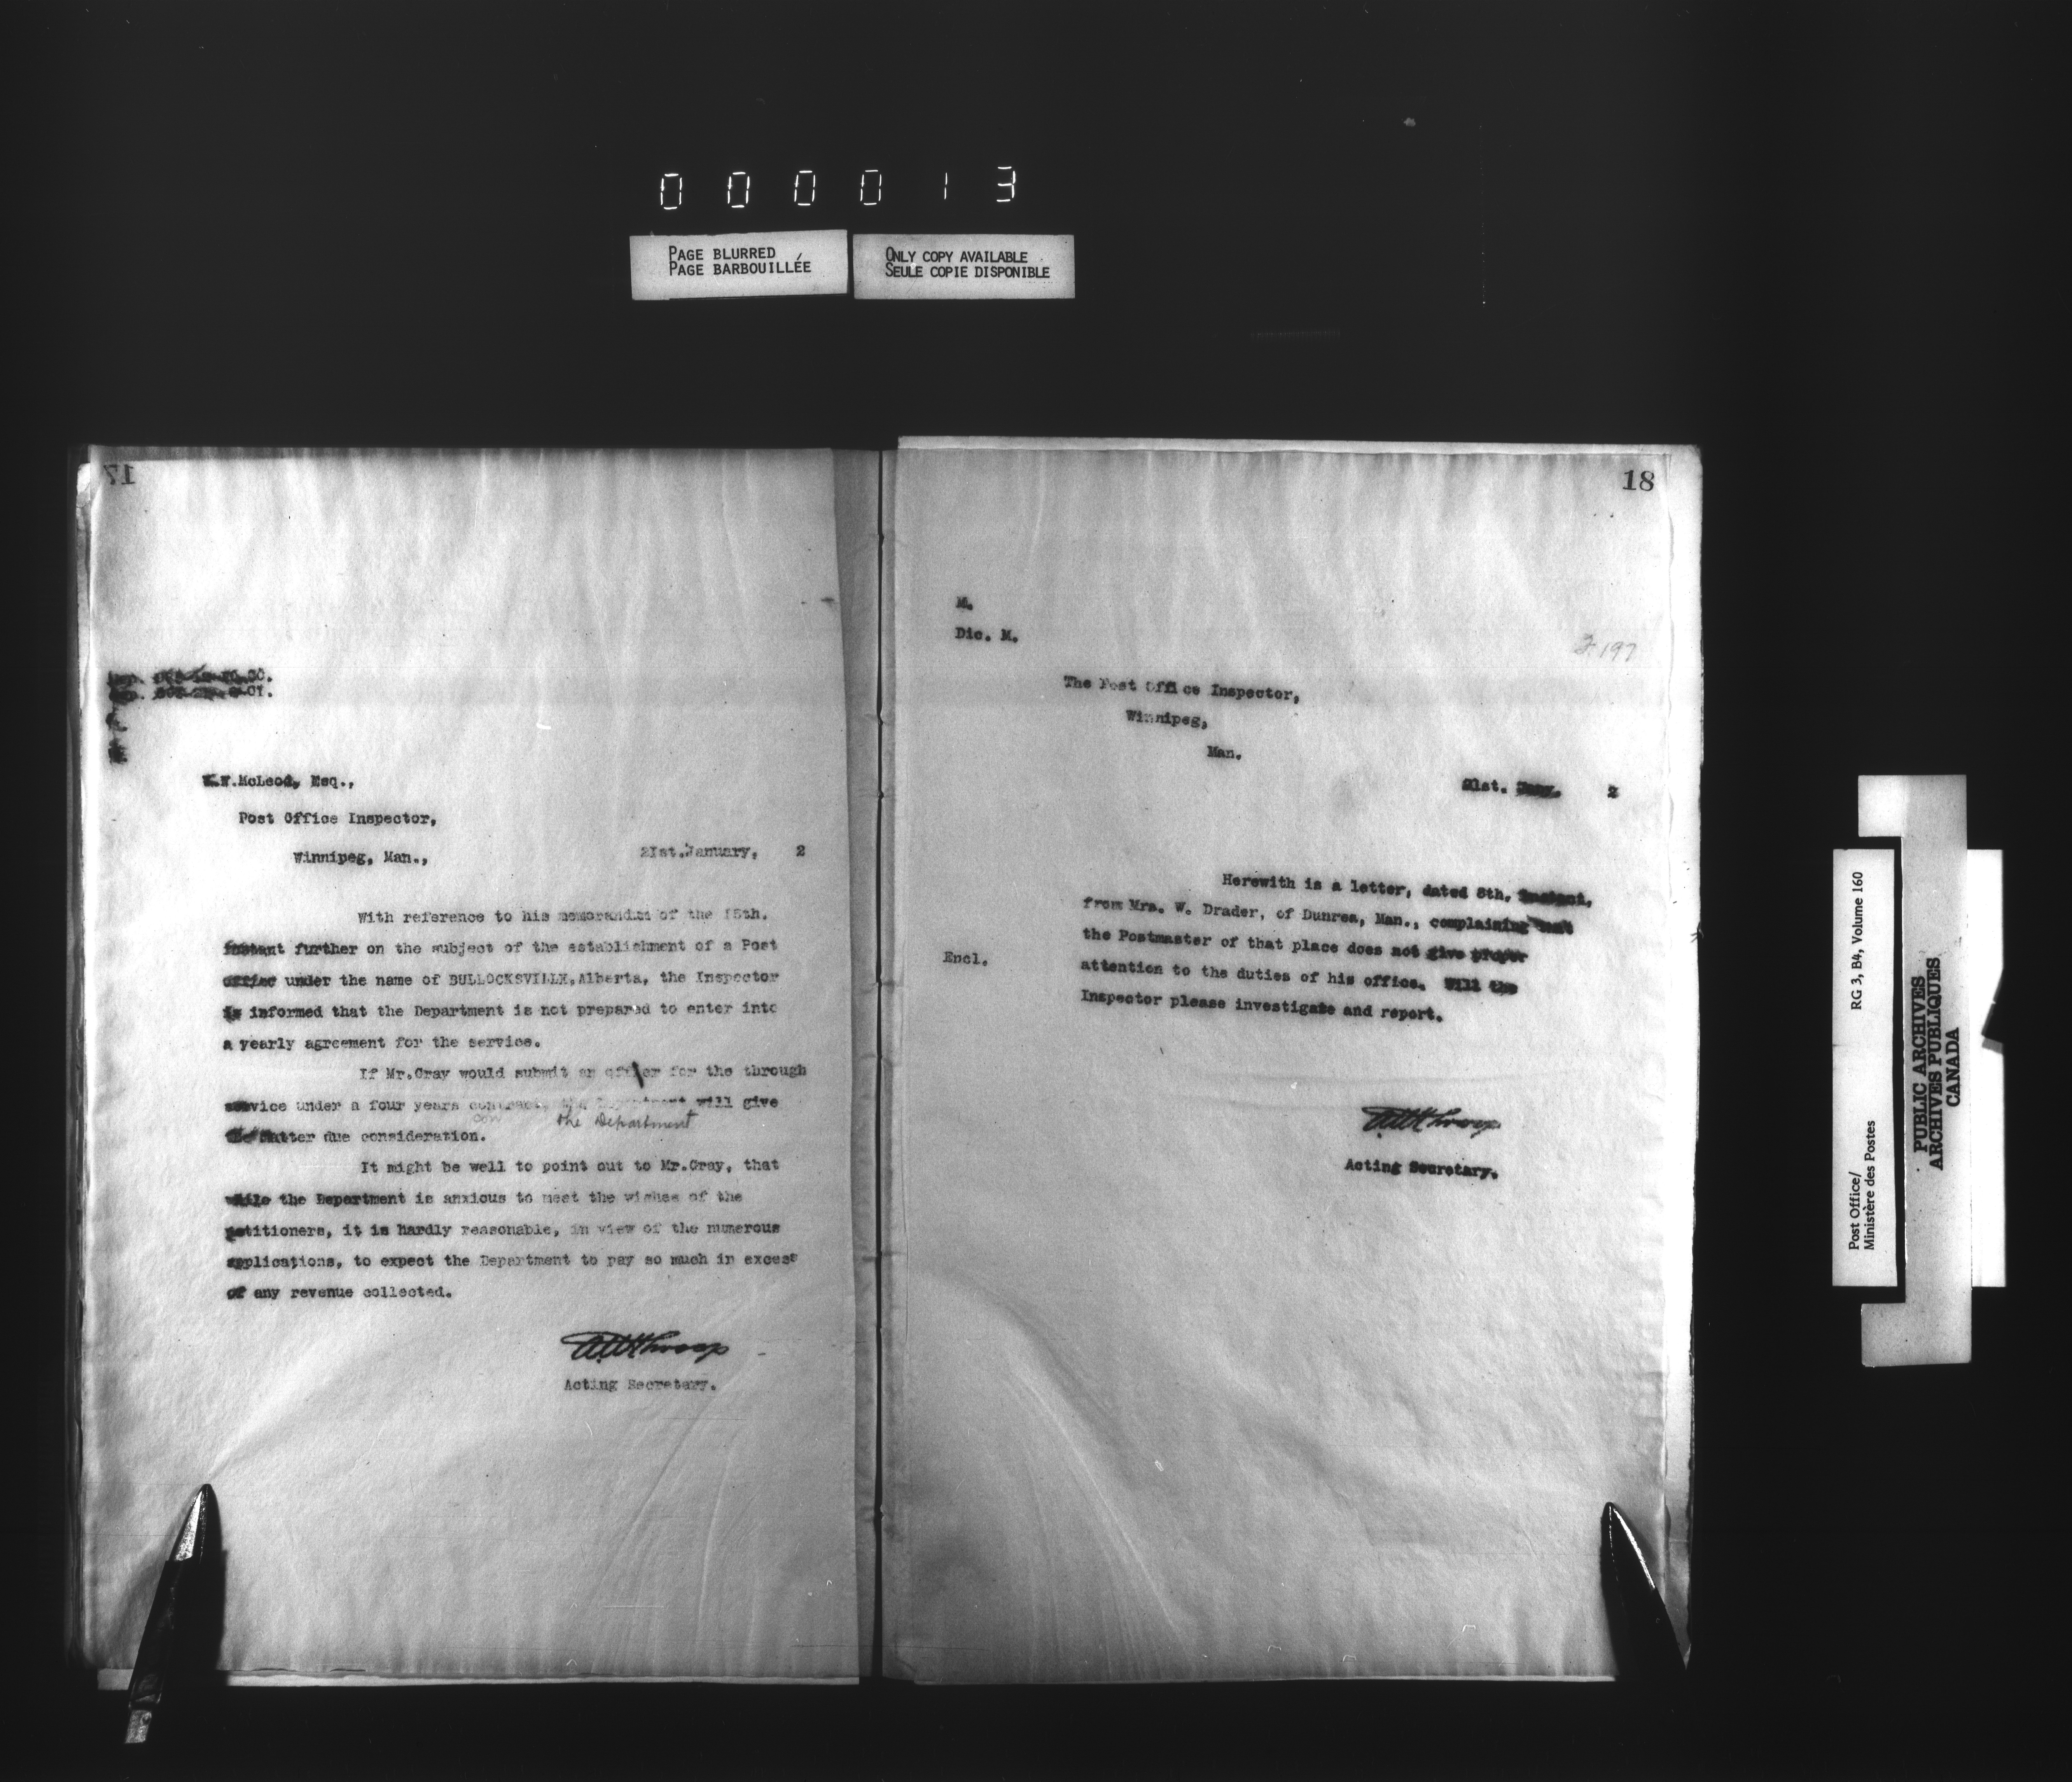 000013
PAGE BLURRED
PAGE BARBOUILLÉE
ONLY COPY AVAILABLE
SEULE COPIE DISPONIBLE
17
McLeod, Esq.,
Post Office Inspector,
Winnipeg, Man.,
21st.January, 2
With reference to his memorandum of the 15th.
instant further on the subject of the establishment of a Post
office under the name of BULLOCKSVILLE,Alberta, the Inspector
is informed that the Department is not prepared to enter into
a yearly agreement for the service.
If Mr.Gray would submit an offer for the through
service under a four years contract, the Department will give
con the Department
the matter due consideration.
It might be well to point out to Mr.Gray, that
while the Department is anxious to meet the wishes of the
petitioners, it is hardly reasonable, in view of the numerous
applications, to expect the Department to pay so much in excess
of any revenue collected.
Acting Secretary.
18
M.
Dic. M.
197
The Post Office Inspector,
Winnipeg,
Man.
21st. Jany. 2
Herewith is a letter, dated 8th. instant,
from Mrs. W. Drader, of Dunrea, Man., complaining that
the Postmaster of that place does not give proper
Encl.
attention to the duties of his office. Will the
Inspector please investigate and report.
Acting Secretary.
Post Office/
Ministère des Postes
RG 3, B4, Volume 160
PUBLIC ARCHIVES
ARCHIVES PUBLIQUES
CANADA